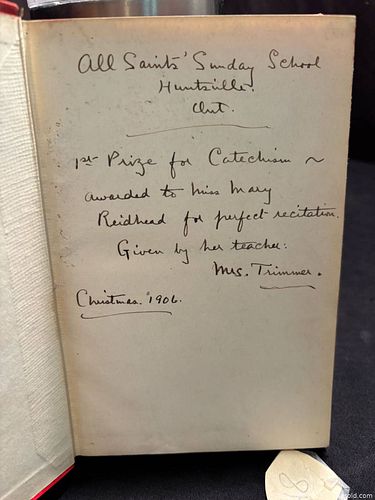 All Saints' Sunday School
Huntsville.
Ont.
1st Prize for Catechism ~
awarded to Miss Mary
Reidhead for perfect recitation.
Given by her teacher:
Mrs. Trimmer.
Christmas. 1906.